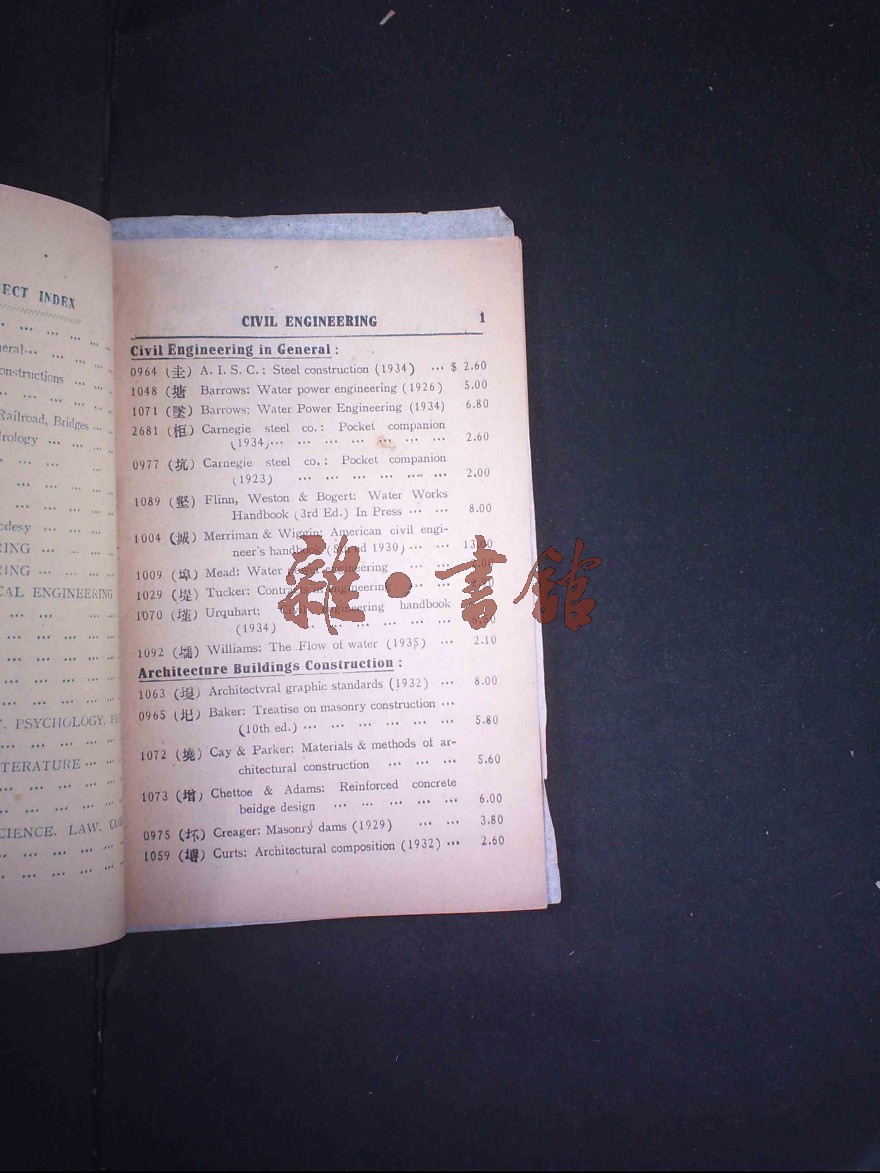 ECT INDEX
... ... ... ... ...
eral... ... ...
onstructions ... ...
Railroad, Bridges ...
rology ... ... ...
odesy ... ... ...
RING ... ... ...
RING ... ... ... ...
CAL ENGINEERING
PSYCHOLOGY.
TERATURE ... ...
CIENCE. LAW.
CIVIL ENGINEERING 1
Civil Engineering in General :
0964 (圭) A. I. S. C. : Steel construction (1934) ... $ 2.60
1048 (塘) Barrows: Water power engineering (1926) 5.00
1071 (墜) Barrows: Water Power Engineering (1934) 6.80
2681 (柜) Carnegie steel co. : Pocket companion
(1934)... ... ... ... ... ... ... 2.60
0977 (坑) Carnegie steel co. : Pocket companion
(1923) ... ... ... ... ... ... 2.00
1089 (壑) Flinn, Weston & Bogert: Water Works
Handbook (3rd Ed.) In Press ... ... 8.00
1004 (城) Merriman & Wiggin: American civil engi-
neer's handbook (5th ed 1930) ... ...
1009 (埠) Mead: Water power engineering ... ...
1029 (堤) Tucker: Contracts in engineering ...
1070 (墐) Urquhart: Civil engineering handbook
(1934) ... ... ... ... ...
1092 (壖) Williams: The Flow of water (1935) ... 2.10
Architecture Buildings Construction :
1063 (堤) Architectvral graphic standards (1932) ... 8.00
0965 (圯) Baker: Treatise on masonry construction ...
(10th ed.) ... ... ... ... ... ... 5.80
1072 (墝) Cay & Parker: Materials & methods of ar-
chitectural construction ... ... ... 5.60
1073 (增) Chettoe & Adams: Reinforced concrete
beidge design ... ... ... ... ... 6.00
0975 (坏) Creager: Masonry dams (1929) ... ... 3.80
1059 (墉) Curts: Architectural composition (1932) ... 2.60
雜·書館